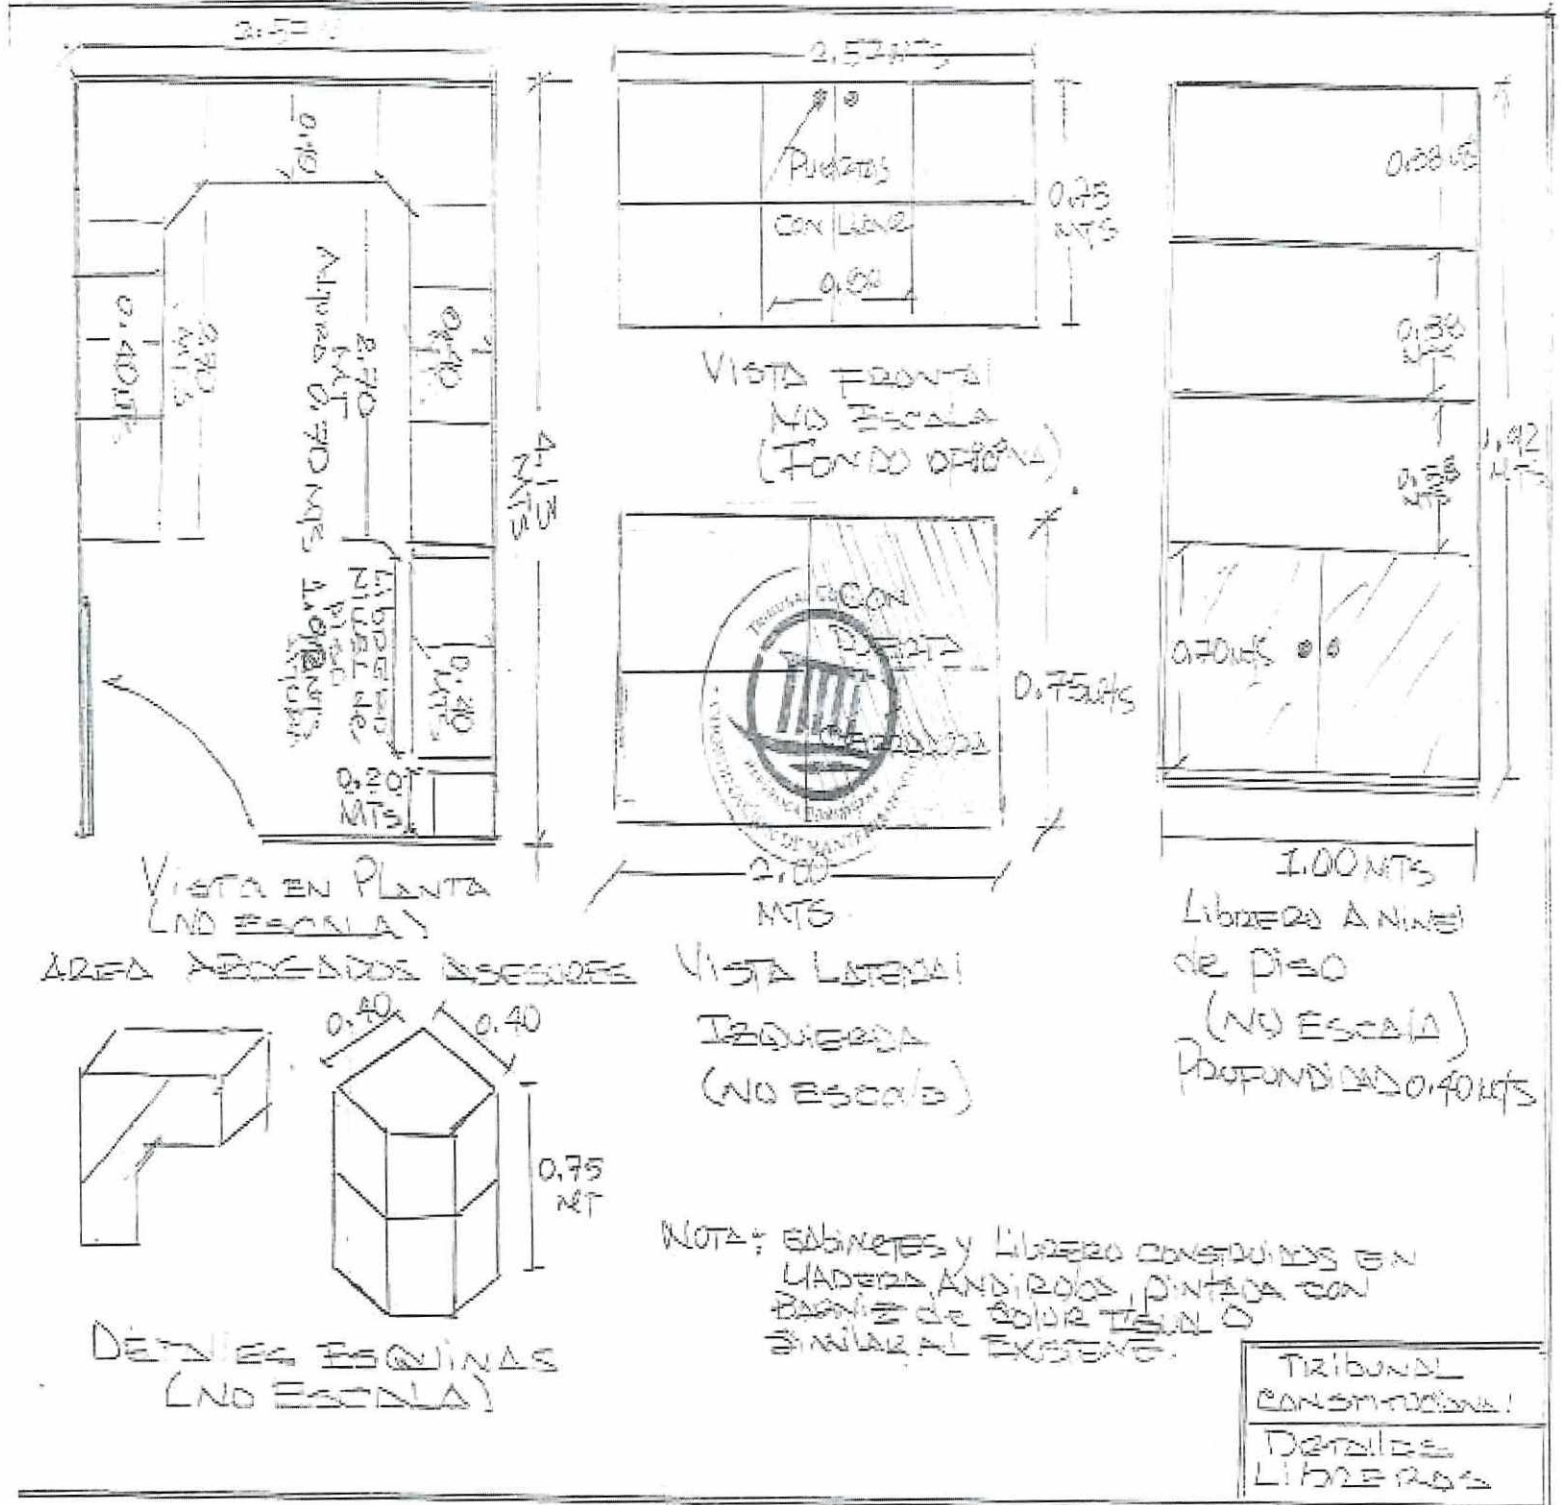 2.57
0.40
0.40 MTS
2.70
MTS
Altura 0.70 MTS
2.70
MT
0.40
4.13
MTS
Librero
Nivel de
Piso
0.40
MTS
0.20
MTS
Vista en Planta
(NO ESCALA)
AREA ABOGADOS ASESORES
2.57 MTS
Puertas
CON LLAVE
0.75
MTS
VISTA FRONTAL
NO ESCALA
(FONDO
CON
PUERTA
CERRADURA
0.75 MTS
2.00
MTS
VISTA LATERAL
IZQUIERDA
(NO ESCALA)
0.38 MTS
0.38
MTS
0.38
MTS
1.92
MTS
0.70 MTS
1.00 MTS
Librero A Nivel
de Piso
(NO ESCALA)
PROFUNDIDAD 0.40 MTS
0.40
0.40
0.75
MT
DETALLES ESQUINAS
(NO ESCALA)
NOTA: GABINETES Y LIBRERO CONSTRUIDOS EN
MADERA ANDIROBA, PINTADA CON
BARNIZ de COLOR IGUAL O
SIMILAR AL EXISTENTE.
TRIBUNAL
CONSTITUCIONAL
DETALLES
LIBREROS
REPÚBLICA DOMINICANA